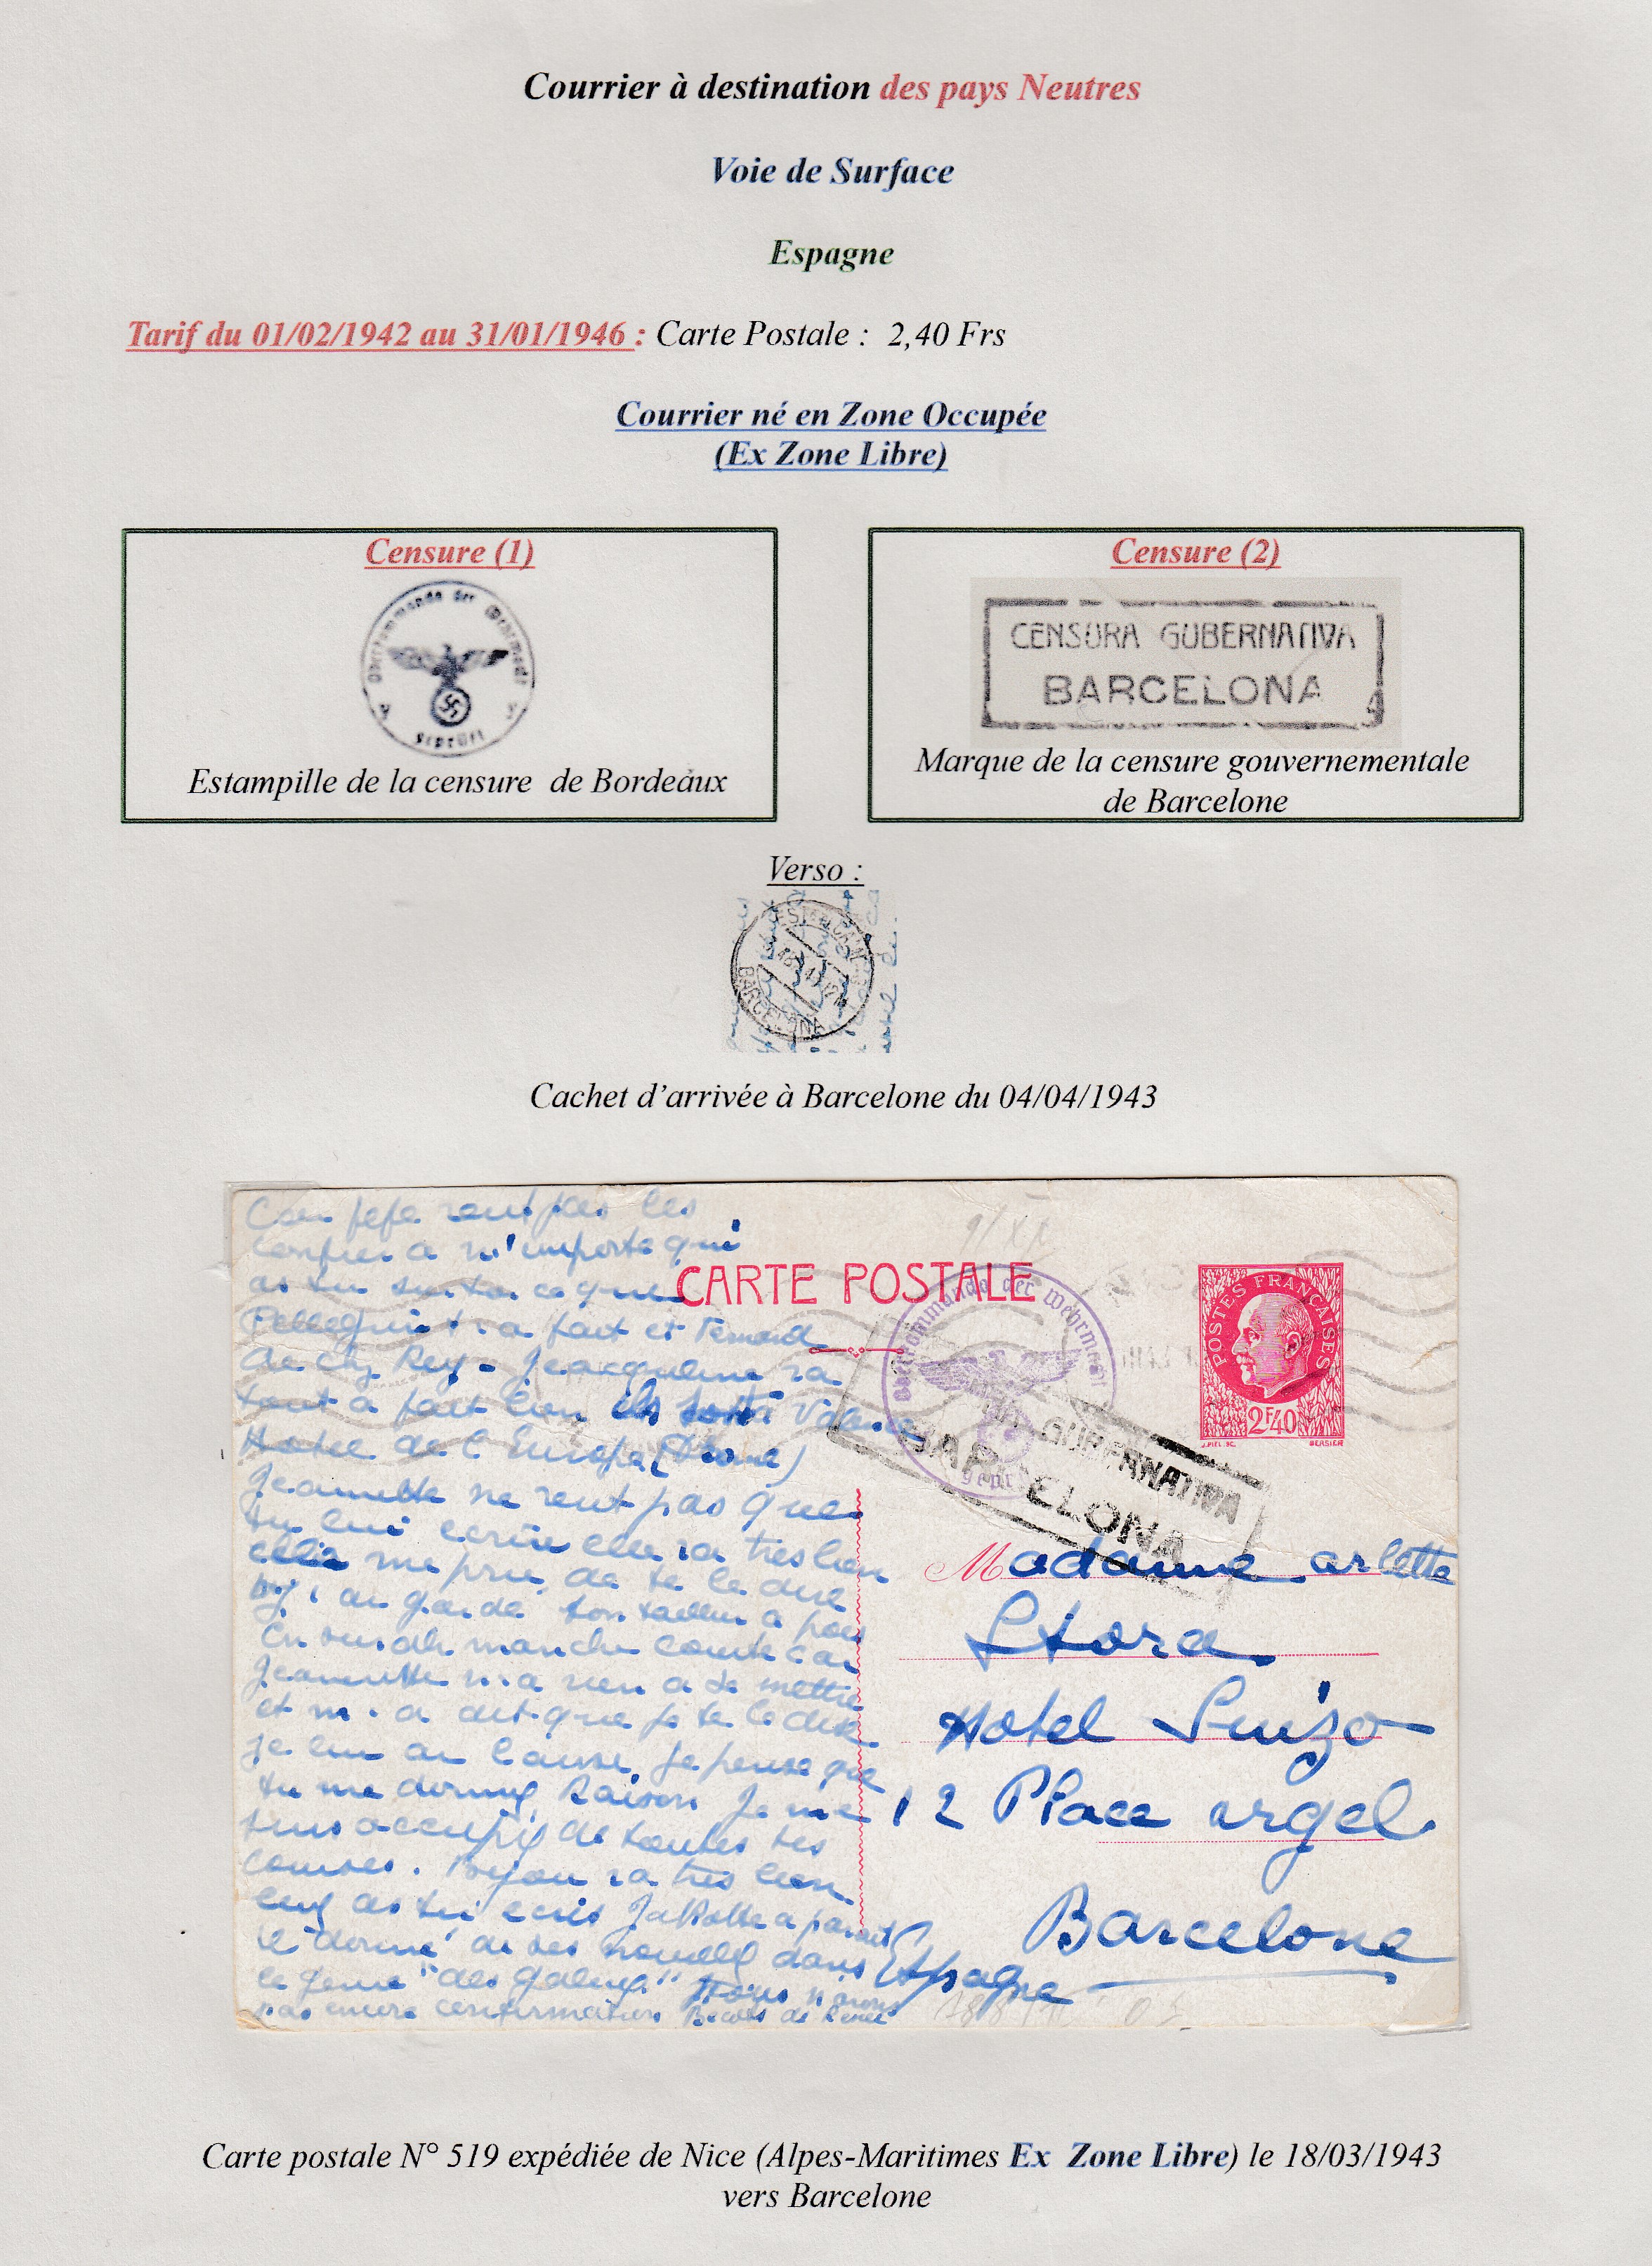 Courrier à destination des pays Neutres
Voie de Surface
Espagne
Tarif du 01/02/1942 au 31/01/1946 : Carte Postale : 2,40 Frs
Courrier né en Zone Occupée
(Ex Zone Libre)
Censure (1)
Oberkommando der Wehrmacht
geprüft
Estampille de la censure de Bordeaux
Censure (2)
CENSURA GUBERNATIVA
BARCELONA
Marque de la censure gouvernementale
de Barcelone
Verso :
BARCELONA
Cachet d'arrivée à Barcelone du 04/04/1943
veut pas les
confier a n'importe qui
as tu
a fait et Fernand
de chez Rey - Jacqueline va
tout a fait bien Valence
Hotel de l'Europe (Drome)
Jeannette ne veut pas que
tu lui ecrive elle va tres bien
elle me prie de te le dire
manche courte car
Jeannette n'a rien a se mettre
et m'a dit que je te le dise
je pense que
tu me donneras raison Je me
suis occupé de toutes tes
courses. va tres bien
as tu ecris
donné de ses nouvelles dans
le genre "des Galeries" Nous n'avons
pas encore confirmation
CARTE POSTALE
Oberkommando der Wehrmacht
gepr
GUBERNATIVA
BARCELONA
POSTES FRANÇAISES
2F40
J.PIEL.SC. BERSIER
Madame arlette
Stora
Hotel Suizo
12 Place argel
Barcelone
Espagne
Carte postale N° 519 expédiée de Nice (Alpes-Maritimes Ex Zone Libre) le 18/03/1943
vers Barcelone